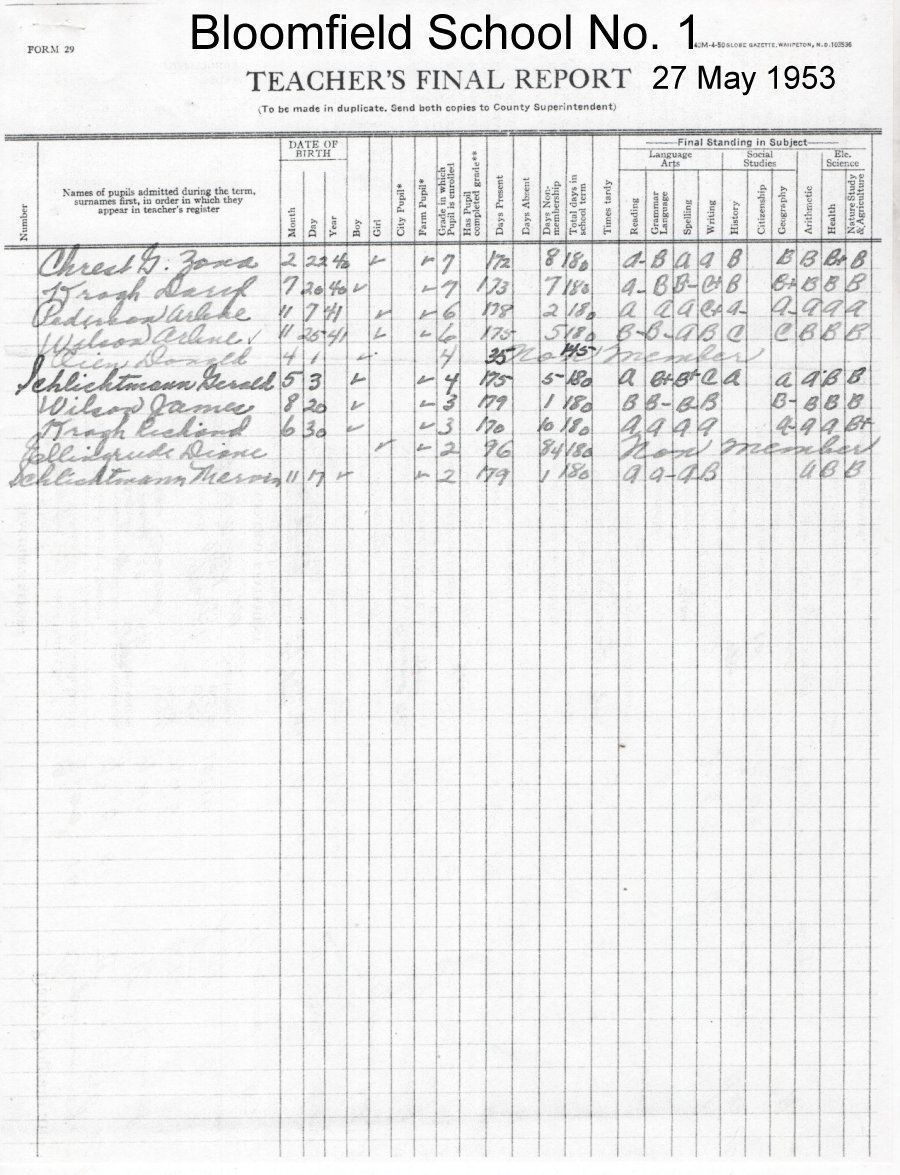 Bloomfield School No. 1
FORM 29
40M-4-50 GLOBE GAZETTE, WAHPETON, N.D. 103536
TEACHER'S FINAL REPORT 27 May 1953
(To be made in duplicate. Send both copies to County Superintendent)
Number
Names of pupils admitted during the term, surnames first, in order in which they appear in teacher's register
DATE OF BIRTH
Month Day Year
Boy
Girl
City Pupil*
Farm Pupil*
Grade in which Pupil is enrolled
Has Pupil completed grade**
Days Present
Days Absent
Days Non-membership
Total days in school term
Times tardy
Final Standing in Subject
Language Arts
Social Studies
Ele. Science
Reading
Grammar Language
Spelling
Writing
History
Citizenship
Geography
Arithmetic
Health
Nature Study & Agriculture
Chrest G. Zona 2 22 40 ✓ ✓ 7 172 8 180 a- B a a B B B B+ B
Krogh David 7 20 40 ✓ ✓ 7 173 7 180 a- B B- C+ B B+ B B B
Pederson Arlene 11 7 41 ✓ ✓ 6 178 2 180 a a a C+ a- a- a a a
Wilson Arlene 11 25 41 ✓ ✓ 6 175 5 180 B- B- a B C C B B B
Donald 4 1 ✓ 4 35 No 145 member
Schlichtmann Gerald 5 3 ✓ ✓ 4 175 5 180 a B+ B+ C a a a B B
Wilson James 8 20 ✓ ✓ 3 179 1 180 B B- B B B- B B B
Krogh Richard 6 30 ✓ ✓ 3 170 10 180 a a a a a- a a B+
Ellingrude Diane ✓ ✓ 2 96 84 180 Non member
Schlichtmann Mervin 11 17 ✓ ✓ 2 179 1 180 a a- a B a B B